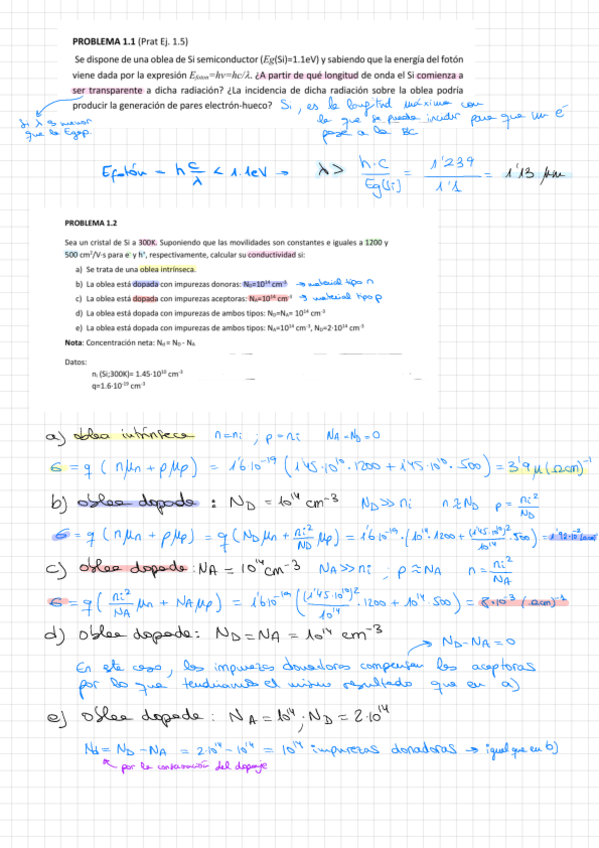 PROBLEMA 1.1 (Prat Ej. 1.5)
Se dispone de una oblea de Si semiconductor (Eg(Si)=1.1eV) y sabiendo que la energía del fotón
viene dada por la expresión Efoton=hν=hc/λ. ¿A partir de qué longitud de onda el Si comienza a
ser transparente a dicha radiación? ¿La incidencia de dicha radiación sobre la oblea podría
producir la generación de pares electrón-hueco? Si, es la longitud máxima con
la que se puede incidir para que un e⁻
pase a la BC.
Si λ es menor
que la Egap.
Efotón = h c/λ < 1.1eV → λ > h·c/Eg(Si) = 1'239/1'1 = 1'13 μm
PROBLEMA 1.2
Sea un cristal de Si a 300K. Suponiendo que las movilidades son constantes e iguales a 1200 y
500 cm²/V·s para e⁻ y h⁺, respectivamente, calcular su conductividad si:
a) Se trata de una oblea intrínseca.
b) La oblea está dopada con impurezas donoras: ND=10¹⁴ cm⁻³ → material tipo n
c) La oblea está dopada con impurezas aceptoras: NA=10¹⁴ cm⁻³ → material tipo p
d) La oblea está dopada con impurezas de ambos tipos: ND=NA= 10¹⁴ cm⁻³
e) La oblea está dopada con impurezas de ambos tipos: NA=10¹⁴ cm⁻³, ND=2·10¹⁴ cm⁻³
Nota: Concentración neta: Nd = ND - NA
Datos:
ni (Si;300K)= 1.45·10¹⁰ cm⁻³
q=1.6·10⁻¹⁹ cm⁻³
a) oblea intrínseca n=ni ; p=ni NA-ND=0
σ = q (nμn + pμp) = 1'6·10⁻¹⁹ (1'45·10¹⁰·1200 + 1'45·10¹⁰·500) = 3'9 μ(Ωcm)⁻¹
b) oblea dopada : ND = 10¹⁴ cm⁻³ ND>>ni n≈ND p = ni²/ND
σ = q (nμn + pμp) = q (NDμn + ni²/ND μp) = 1'6·10⁻¹⁹·(10¹⁴·1200 + (1'45·10¹⁰)²/10¹⁴·500) = 1'92·10⁻² (Ωcm)⁻¹
c) oblea dopada : NA = 10¹⁴ cm⁻³ NA>>ni ; p≈NA n = ni²/NA
σ = q (ni²/NA μn + NAμp) = 1'6·10⁻¹⁹ ((1'45·10¹⁰)²/10¹⁴·1200 + 10¹⁴·500) = 8·10⁻³ (Ωcm)⁻¹
d) oblea dopada: ND = NA = 10¹⁴ cm⁻³
→ ND-NA=0
En este caso, las impurezas donadoras compensan las aceptoras
por lo que tendríamos el mismo resultado que en a)
e) oblea dopada : NA = 10¹⁴ ; ND = 2·10¹⁴
Nd = ND - NA = 2·10¹⁴ - 10¹⁴ = 10¹⁴ impurezas donadoras → igual que en b)
por la conservación del dopaje